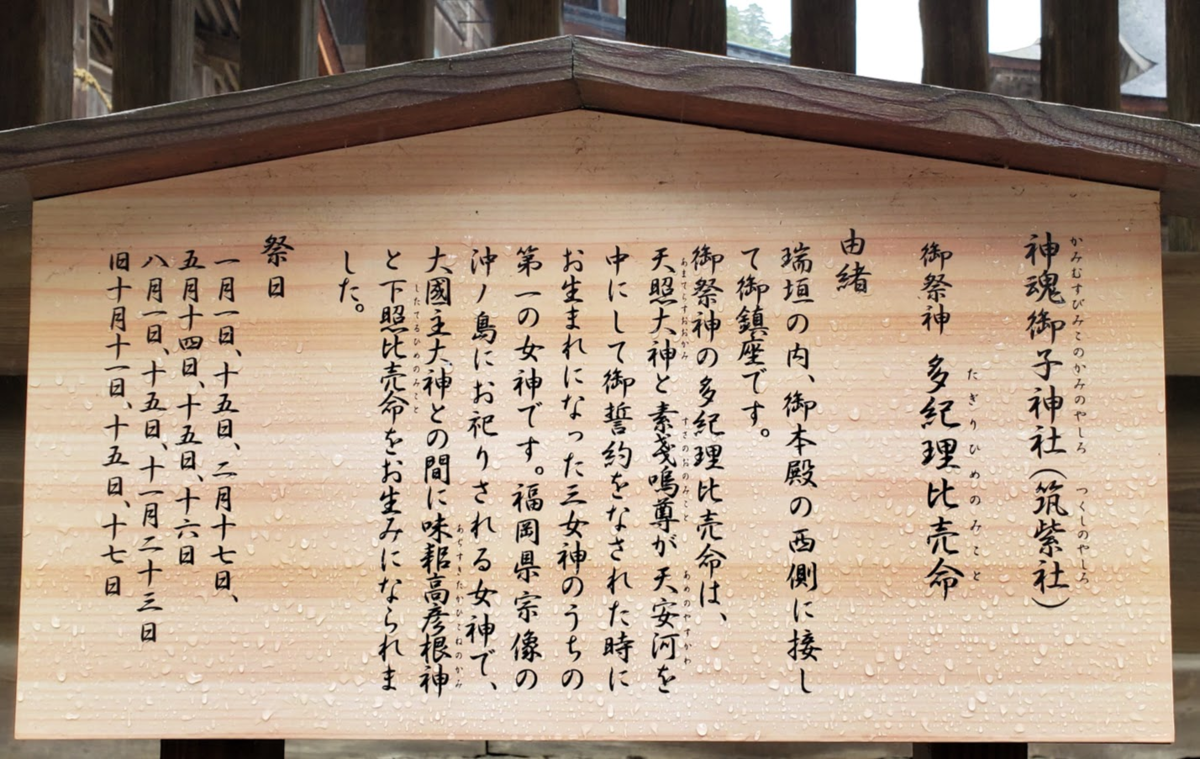 神魂御子神社（筑紫社）
かみむすびみこのかみのやしろ
つくしのやしろ
御祭神 多紀理比売命
たぎりひめのみこと
由緒
瑞垣の内、御本殿の西側に接し
て御鎮座です。
御祭神の多紀理比売命は、
天照大神と素戔嗚尊が天安河を
あまてらすおおかみ
すさのおのみこと
あめのやすかわ
中にして御誓約をなされた時に
お生まれになった三女神のうちの
第一の女神です。福岡県宗像の
沖ノ島にお祀りされる女神で、
大國主大神との間に味耜高彦根神
あぢすきたかひこねのかみ
と下照比売命をお生みになられま
したてるひめのみこと
した。
祭日
一月一日、十五日、二月十七日、
五月十四日、十五日、十六日
八月一日、十五日、十一月二十三日
旧十月十一日、十五日、十七日